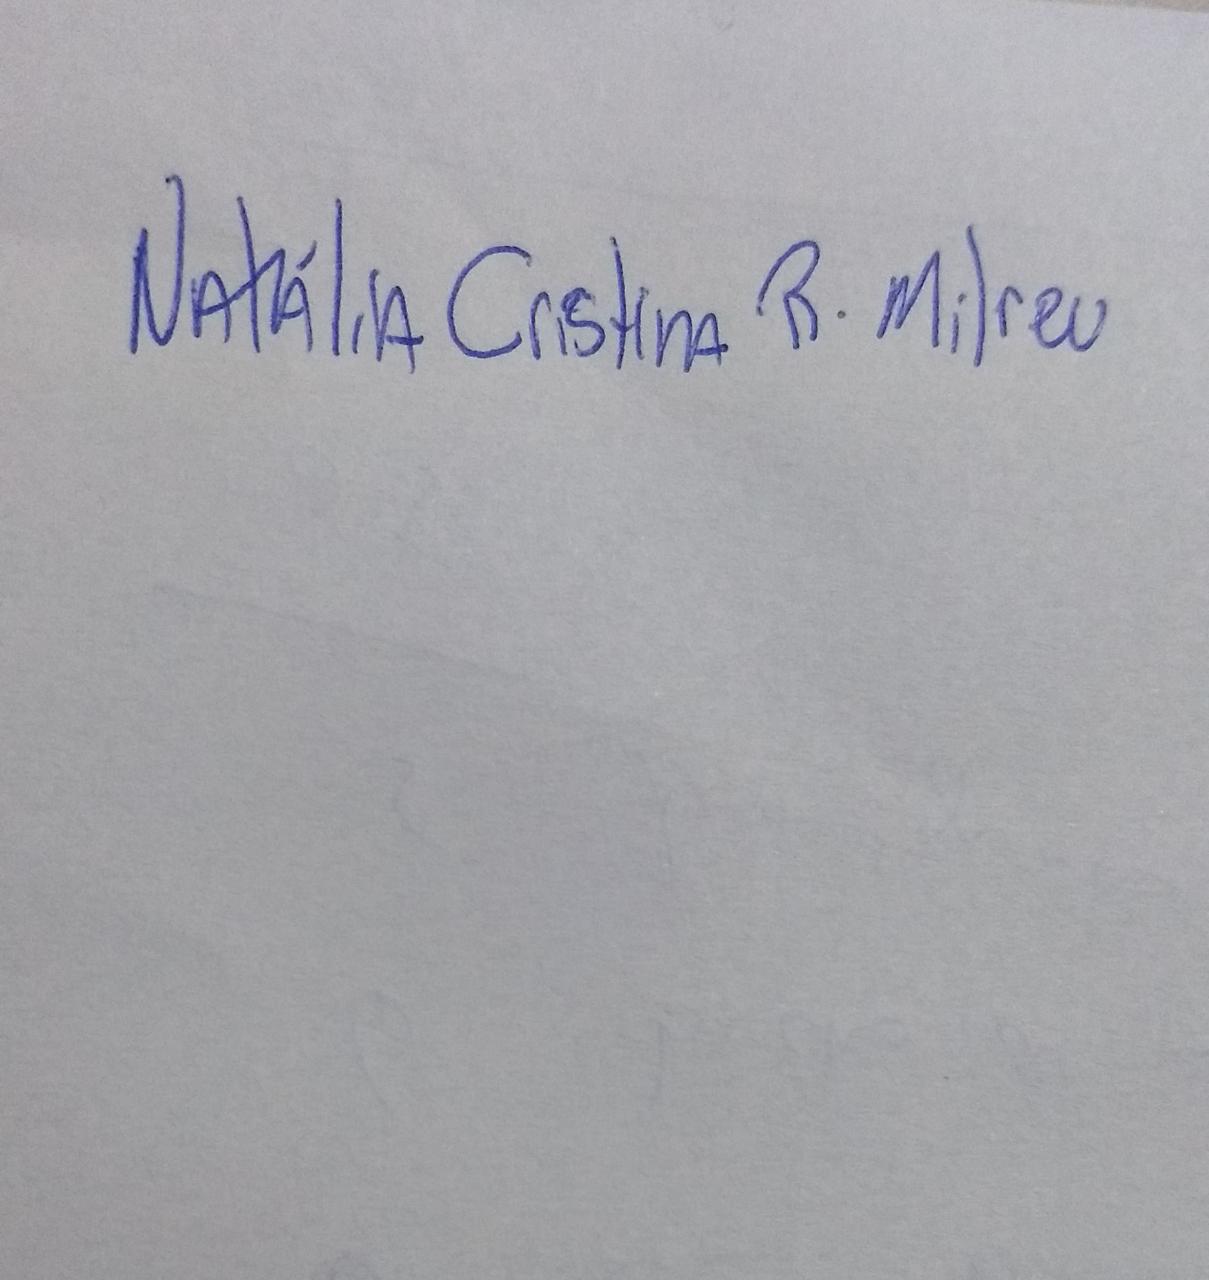 Natália Cristina R. Milreu